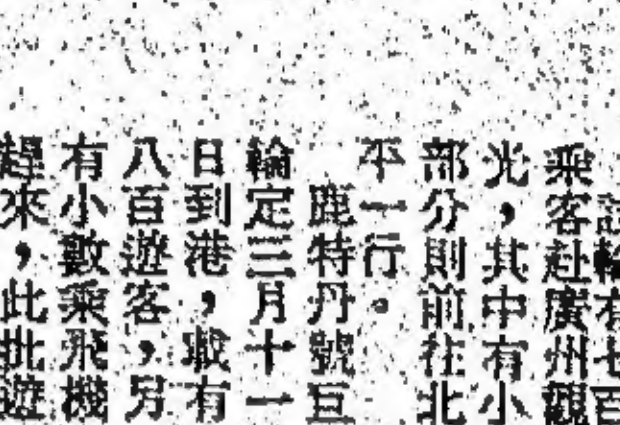 該輪有七百
乘客赴廣州觀
光，其中有小
部分則前往北
平一行。
鹿特丹號巨
輪定三月十一
日到港，載有
八百遊客，另
有小數乘飛機
趕來，此批遊